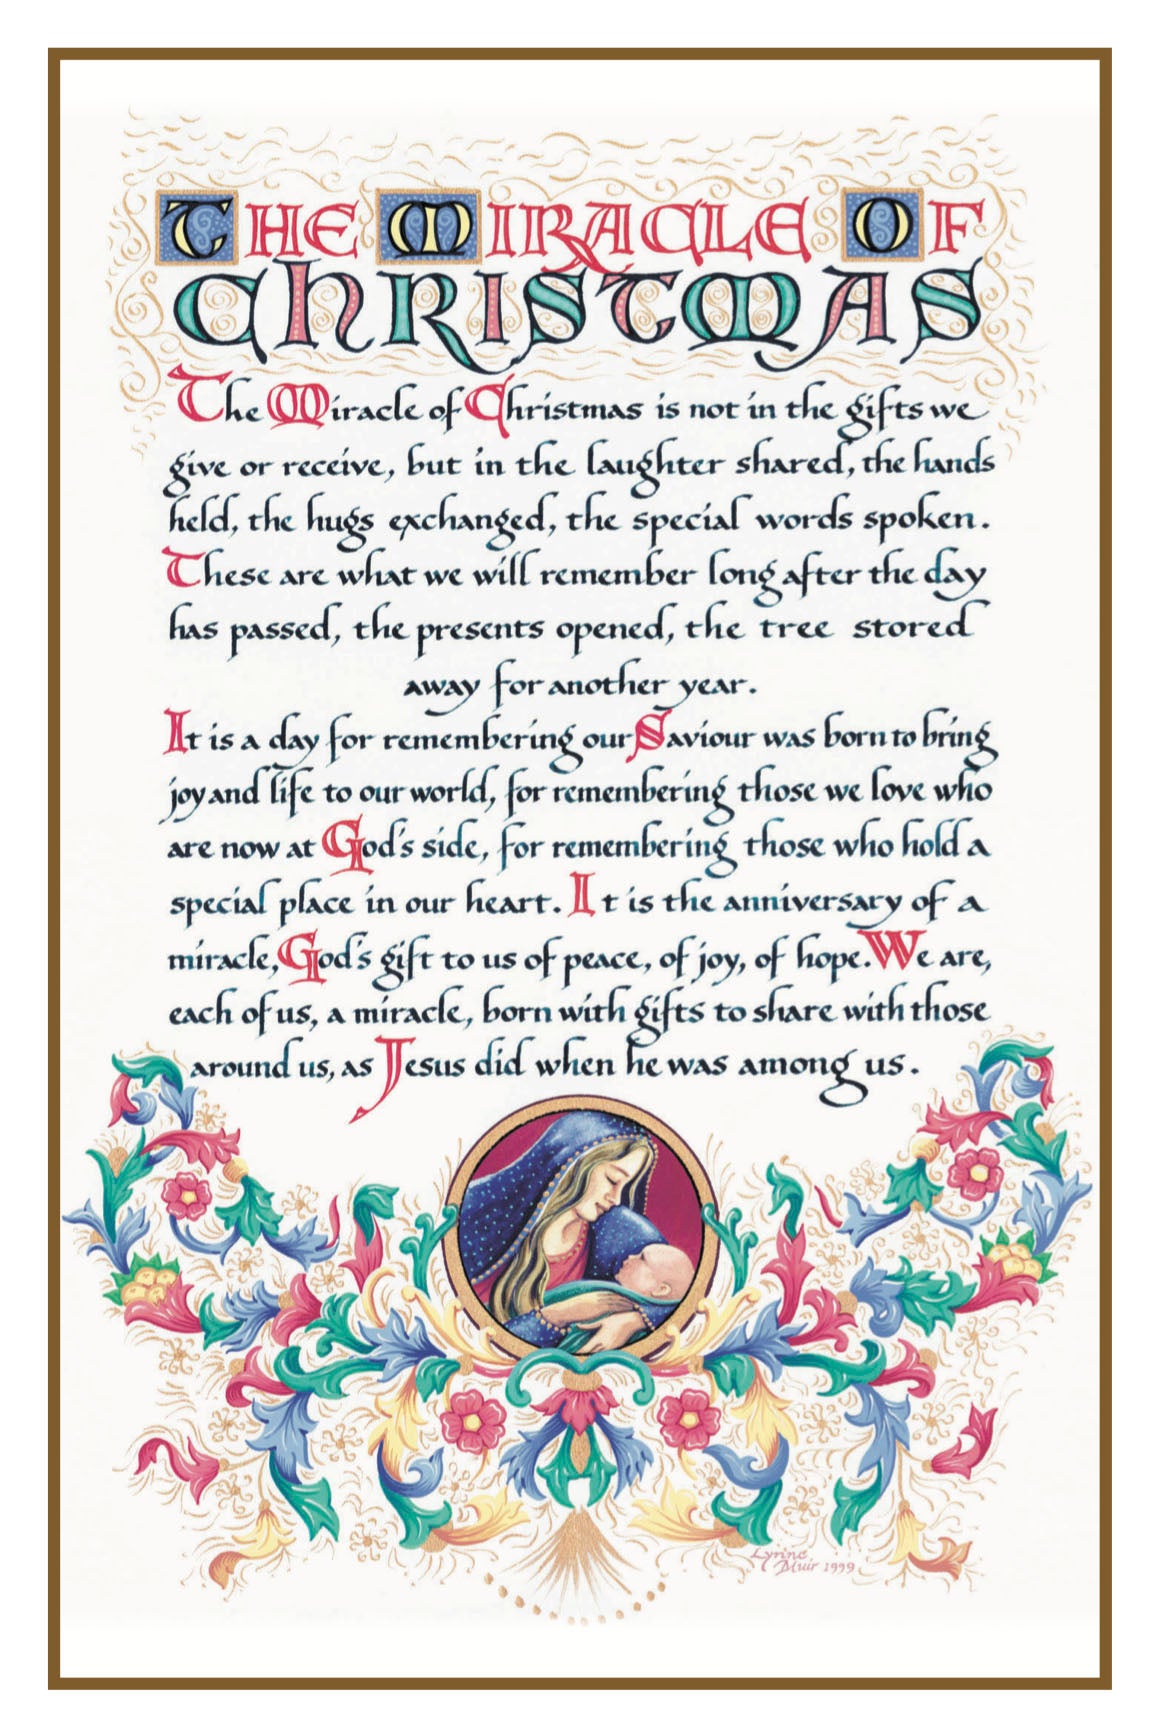 The Miracle of
Christmas
The Miracle of Christmas is not in the gifts we
give or receive, but in the laughter shared, the hands
held, the hugs exchanged, the special words spoken.
These are what we will remember long after the day
has passed, the presents opened, the tree stored
away for another year.
It is a day for remembering our Saviour was born to bring
joy and life to our world, for remembering those we love who
are now at God's side, for remembering those who hold a
special place in our heart. It is the anniversary of a
miracle, God's gift to us of peace, of joy, of hope. We are,
each of us, a miracle, born with gifts to share with those
around us, as Jesus did when he was among us.
Lyrine
Muir 1999